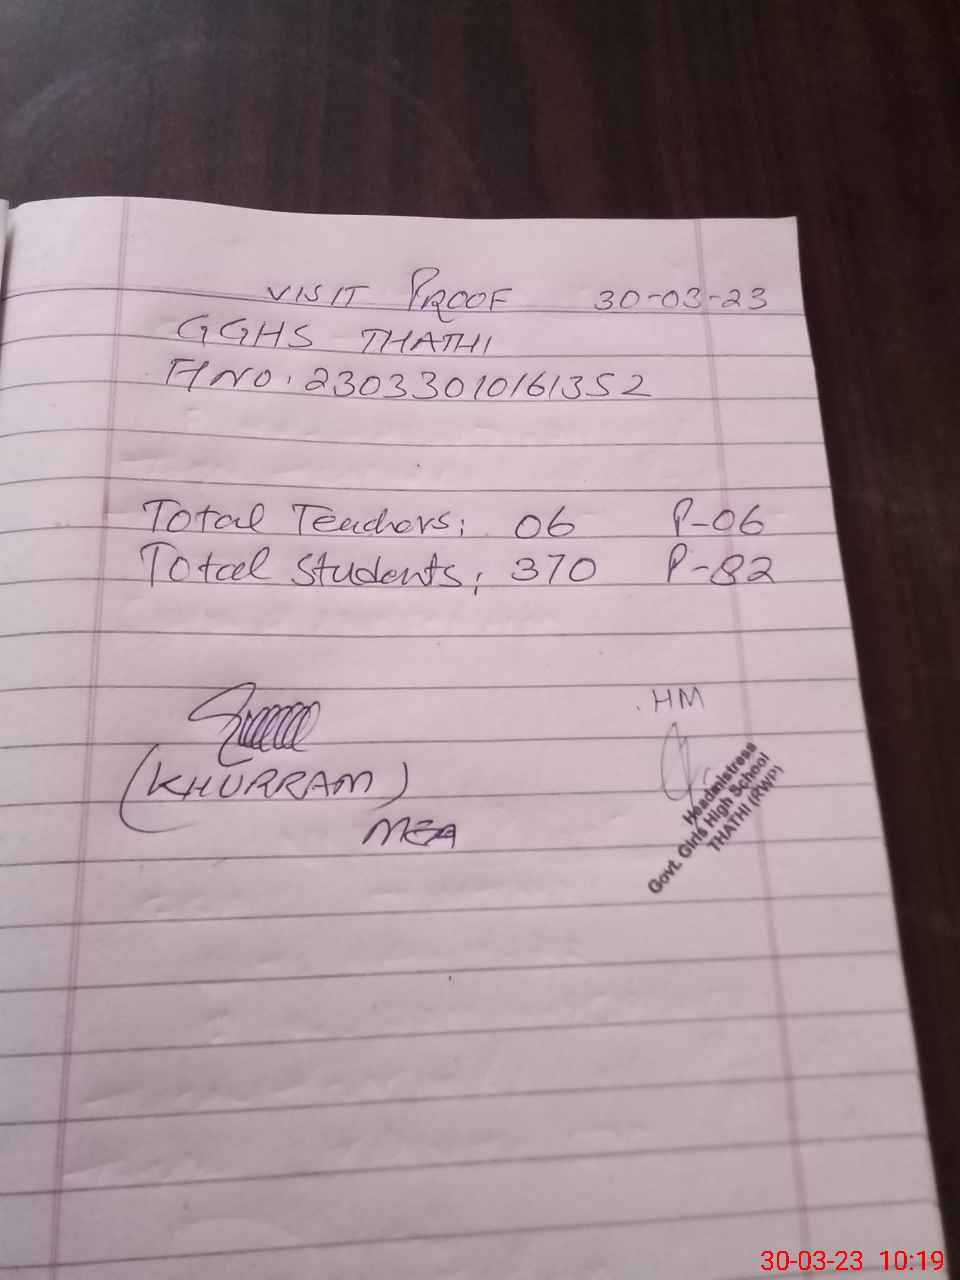 VISIT PROOF 30-03-23
GGHS THATHI
H NO. 23033010161352
Total Teachers; 06 P-06
Total Students; 370 P-82
HM
(KHURRAM)
MEA
Headmistress
Govt. Girls High School
THATHI (RWP)
30-03-23 10:19